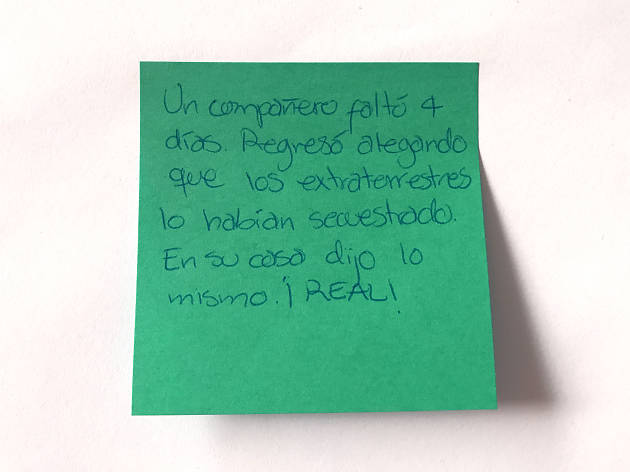 Un compañero faltó 4
días. Regresó alegando
que los extraterrestres
lo habían secuestrado.
En su casa dijo lo
mismo. ¡REAL!